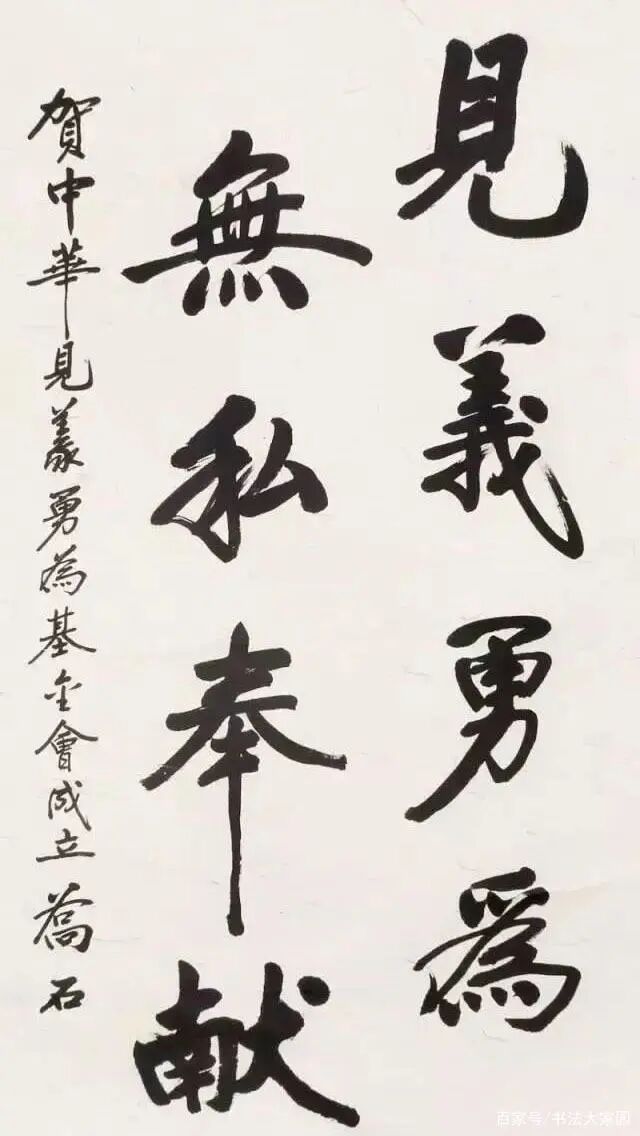 見義勇為
無私奉献
賀中華見義勇為基金會成立 喬石
百家号/书法大家园